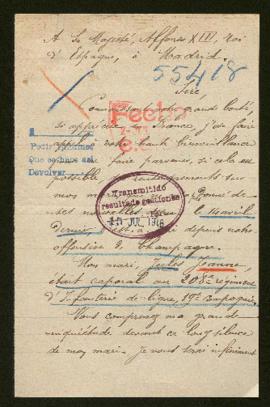 A Sa Majesté, Alfonso XIII, roi
d'Espagne, à Madrid.
55418
Sire
Connaissant votre grande bonté,
Fecho
si appréciée en France, j'ose faire
appel à votre haute bienveillance
Pedir informes
Que se hace así
faire parvenir, si cela est
Devolver
possible
renseignements sur
mon mari
Transmitido
resultado gestiones
15 JUL 1916
depuis notre
offensive de Champagne.
Mon mari, Jules Jeanne,
était caporal au 208e régiment
d'Infanterie de ligne, 19e compagnie.
Vous comprenez ma grande
inquiétude devant ce long silence
de mon mari – je vous serai infiniment